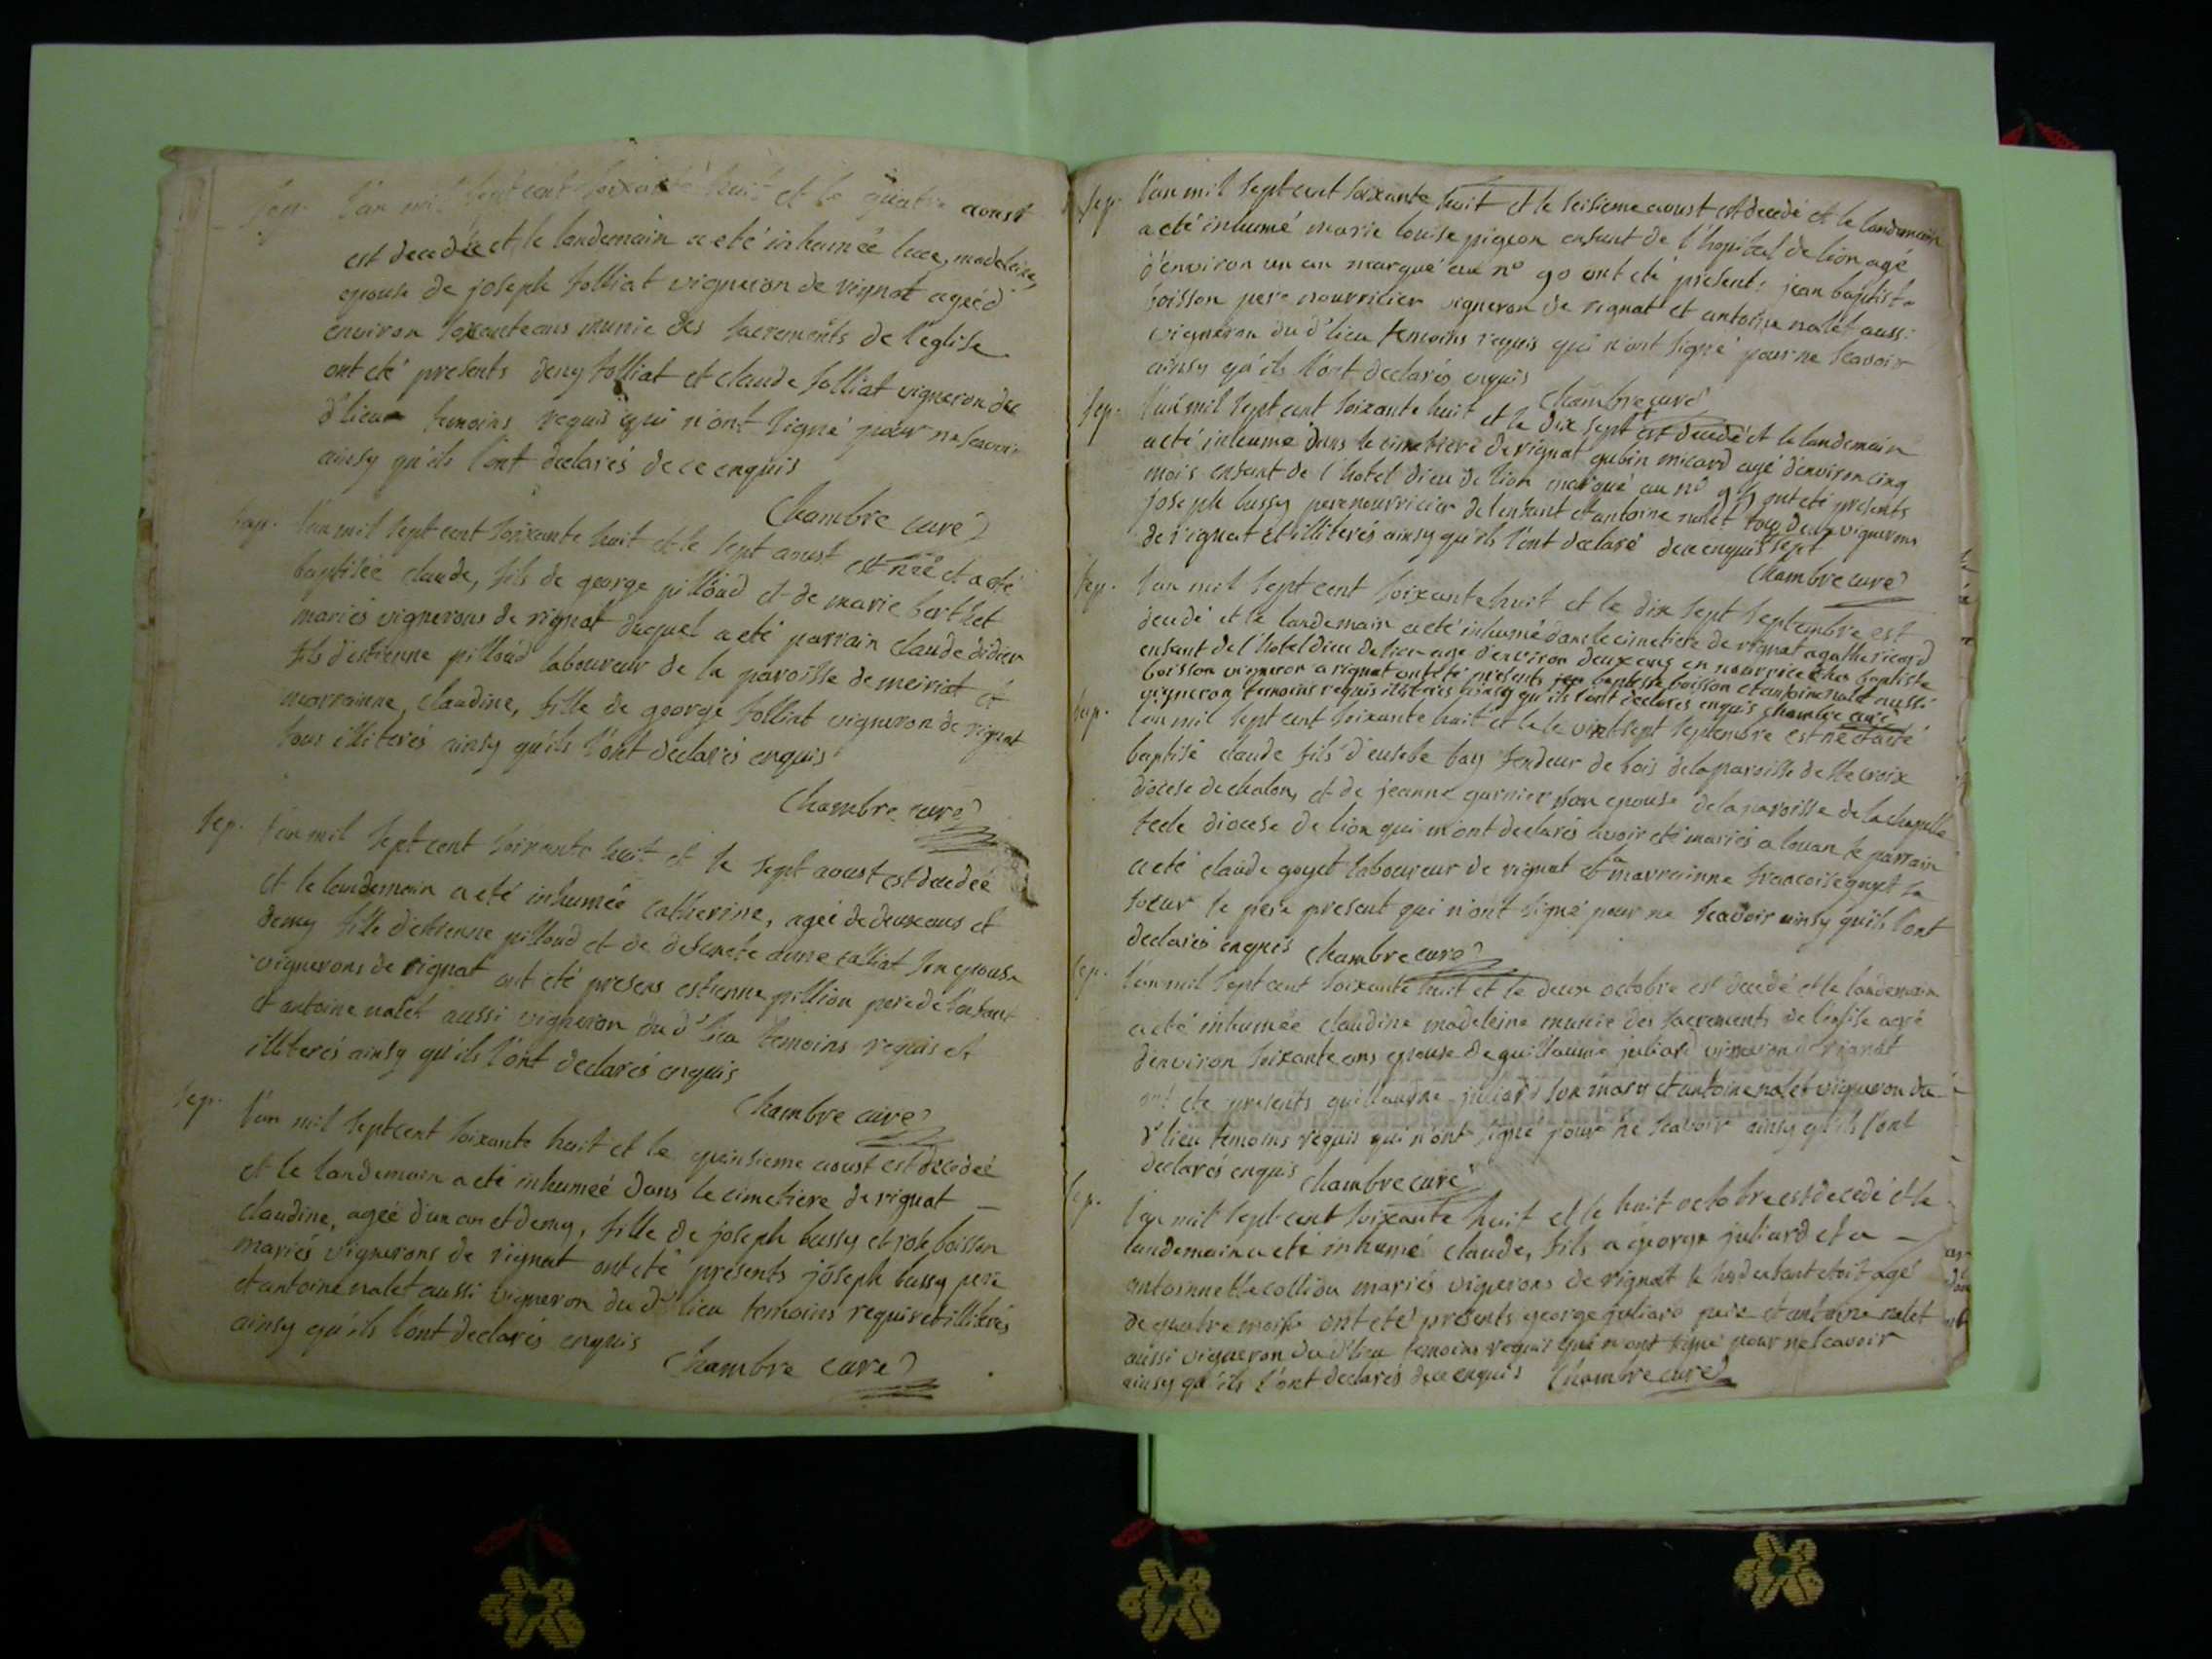 Sep. l'an mil sept cent soixante huit et le quatre aoust
est decedée et le landemain a eté inhumée luce, madeleine,
epouse de joseph folliat vigneron de rignat agéé d'
environ soixante ans munie des sacrements de l'eglise
ont eté presents deny folliat et claude folliat vigneron du
d' lieu temoins requis qui n'ont signé pour ne scavoir
ainsy qu'ils l'ont declarés de ce enquis
Chambre curé
bap. l'an mil sept cent soixante huit et le sept aoust est née et a eté
baptisée claude, fils de george pilloud et de marie berthet
mariés vignerons de rignat duquel a eté parrain claude didier
fils d'estienne pilloud laboureur de la paroisse de meiriat et
marrainne, claudine, fille de george folliat vigneron de rignat
tous illiterés ainsy qu'ils l'ont declarés enquis
Chambre curé
Sep. l'an mil sept cent soixante huit et le sept aoust est decedée
et le landemain a eté inhumée catherine, agéé de deux ans et
demy fille d'estienne pilloud et de anne son epouse
vignerons de rignat ont eté presens estienne pillion pere de l'enfant
et antoine nalet aussi vigneron du d' lieu temoins requis et
illiterés ainsy qu'ils l'ont declarés enquis
Chambre curé
Sep. l'an mil sept cent soixante huit et le quinsieme aoust est decedéé
et le landemain a eté inhumeé dans le cimetiere de rignat
claudine, agéé d'un an et demy, fille de joseph bussy et boisson
mariés vignerons de rignat ont eté presents joseph bussy pere
et antoine nalet aussi vigneron du d' lieu temoins requis et illiterés
ainsy qu'ils l'ont declarés enquis
Chambre curé
Sep. l'an mil sept cent soixante huit et le seisieme aoust est decedé et le landemain
a eté inhumé marie louise pigeon enfant de l'hopital de lion agé
d'environ un an marqué au n° 90 ont eté presents jean baptiste
boisson pere nourricier vigneron de rignat et antoine nalet aussi
vigneron du d' lieu temoins requis qui n'ont signé pour ne scavoir
ainsy qu'ils l'ont declarés enquis
Chambre curé
Sep. l'an mil sept cent soixante huit et le dix sept est decedé et le landemain
a eté inhumé dans le cimetiere de rignat aubin micard agé d'environ cinq
mois enfant de l'hotel dieu de lion marqué au n° ont eté presents
joseph bussy pere nourricier de l'enfant et antoine nalet tous deux vignerons
de rignat et illiterés ainsy qu'ils l'ont declaré de ce enquis sept
Chambre curé
Sep. l'an mil sept cent soixante huit et le dix sept septembre est
decedé et le landemain a eté inhumé dans le cimetiere de rignat agathe ricard
enfant de l'hotel dieu de lion agé d'environ deux ans en nourrice chés baptiste
boisson vigneron a rignat ont eté presents jean baptiste boisson et antoine nalet aussi
vigneron temoins requis illiterés ainsy qu'ils l'ont declarés enquis Chambre curé
bap. l'an mil sept cent soixante huit et le le vint sept septembre est né et a eté
baptisé claude fils d'eusebe bay fendeur de bois de la paroisse de ste croix
diocese de chalon, et de jeanne garnier son epouse de la paroisse de la chapelle
tecle diocese de lion qui m'ont declarés avoir eté mariés a louan le parrain
a eté claude goyet laboureur de rignat et la marrainne francoise goyet sa
soeur le pere present qui n'ont signé pour ne scavoir ainsy qu'ils l'ont
declarés enquis Chambre curé
Sep. l'an mil sept cent soixante huit et le deux octobre est decedé et le landemain
a eté inhumée claudine madeleine munie des sacrements de l'eglise agée
d'environ soixante ans epouse de guillaume juliard vigneron de rignat
ont eté presents guillaume juliard son mary et antoine nalet vigneron du
d' lieu temoins requis qui n'ont signé pour ne scavoir ainsy qu'ils l'ont
declarés enquis Chambre curé
Sep. l'an mil sept cent soixante huit et le huit octobre est decedé et le
landemain a eté inhumé claude, fils a george juliard et a
antoinette colliou mariés vignerons de rignat le susd enfant etoit agé
de quatre mois ont eté presents george juliard pere et antoine nalet
aussi vigneron du d' lieu temoins requis qui n'ont signé pour ne scavoir
ainsy qu'ils l'ont declarés de ce enquis Chambre curé